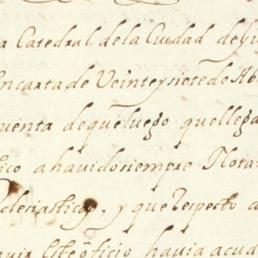 a Catedral, de la Ciudad de
en carta de Veinte y siete de Ab
cuenta de que luego que llega
ico a havido siempre Nota
cleriasticos, y que Respecto a
este oficio havia acu